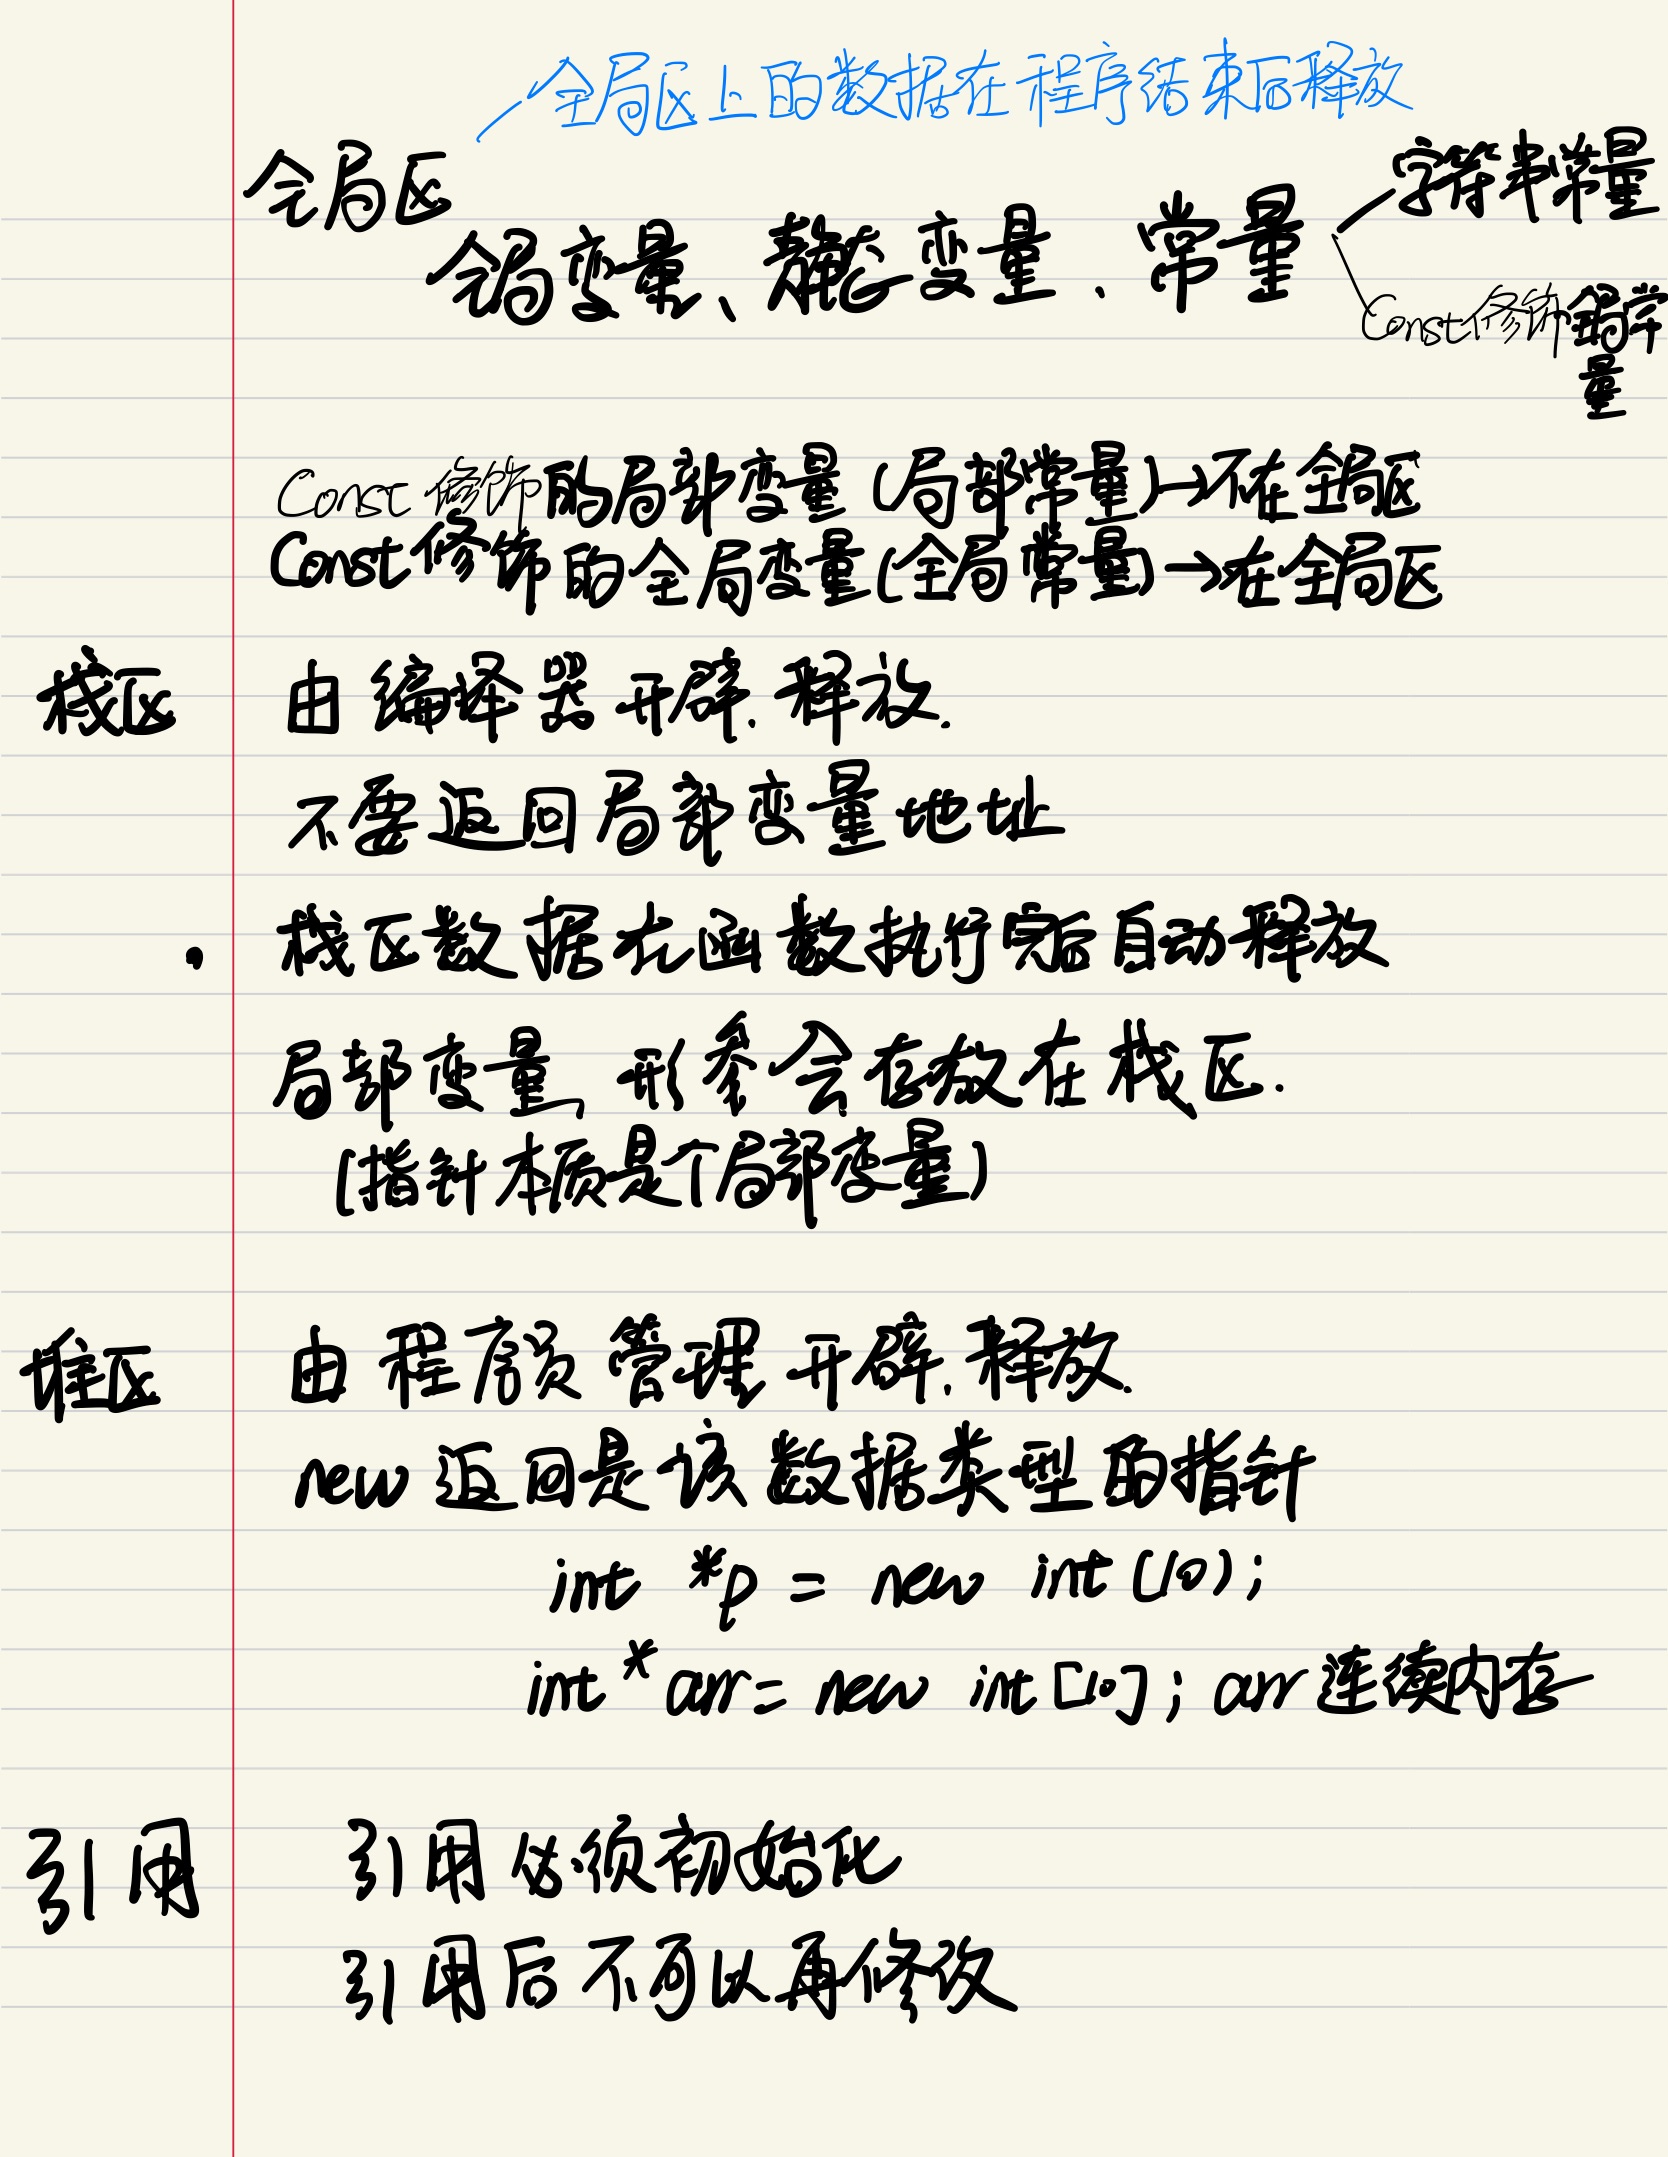 全局区上的数据在程序结束后释放
全局区
全局变量、静态变量、常量
字符串常量
Const修饰全局常量
Const修饰的局部变量(局部常量)→不在全局区
Const修饰的全局变量(全局常量)→在全局区
栈区 由编译器开辟.释放.
不要返回局部变量地址
·栈区数据在函数执行完后自动释放
局部变量,形参会存放在栈区.
(指针本质是个局部变量)
堆区 由程序员管理开辟.释放.
new 返回是该数据类型的指针
int *p = new int(10);
int * arr = new int[10]; arr连续内存
引用 引用必须初始化
引用后不可以再修改